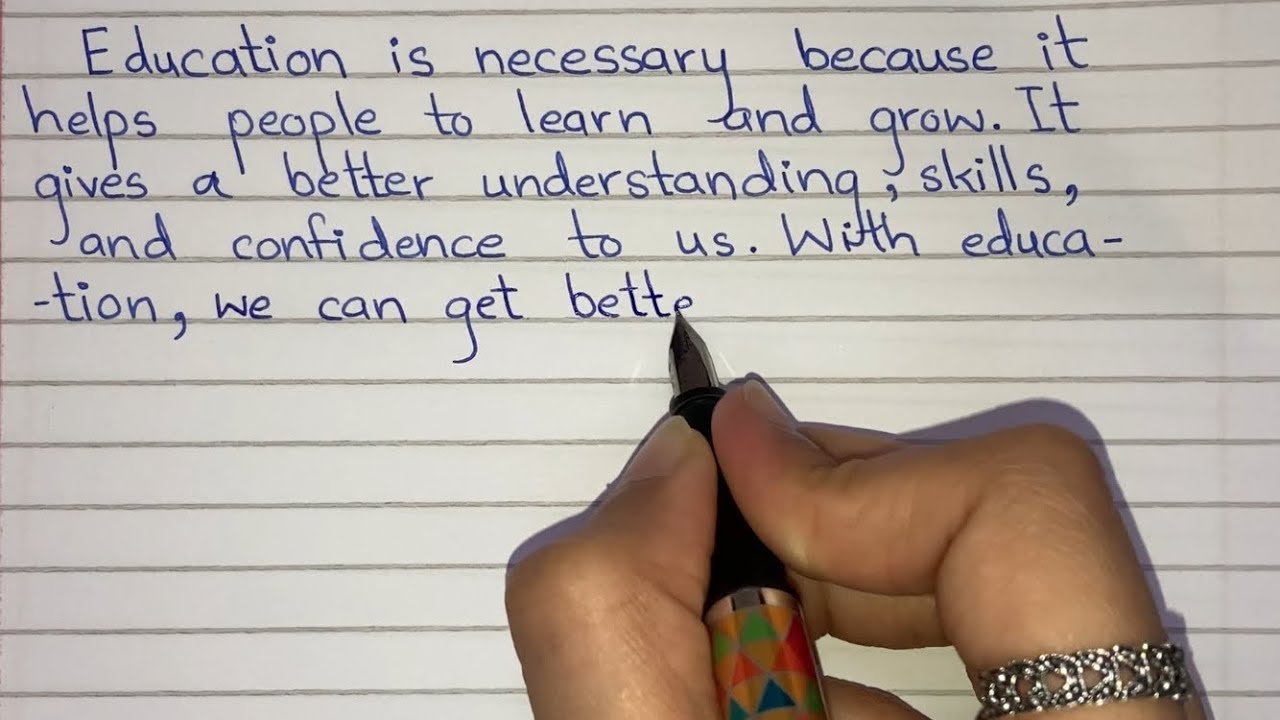 Education is necessary because it
helps people to learn and grow. It
gives a better understanding, skills,
and confidence to us. With educa-
-tion, we can get bette